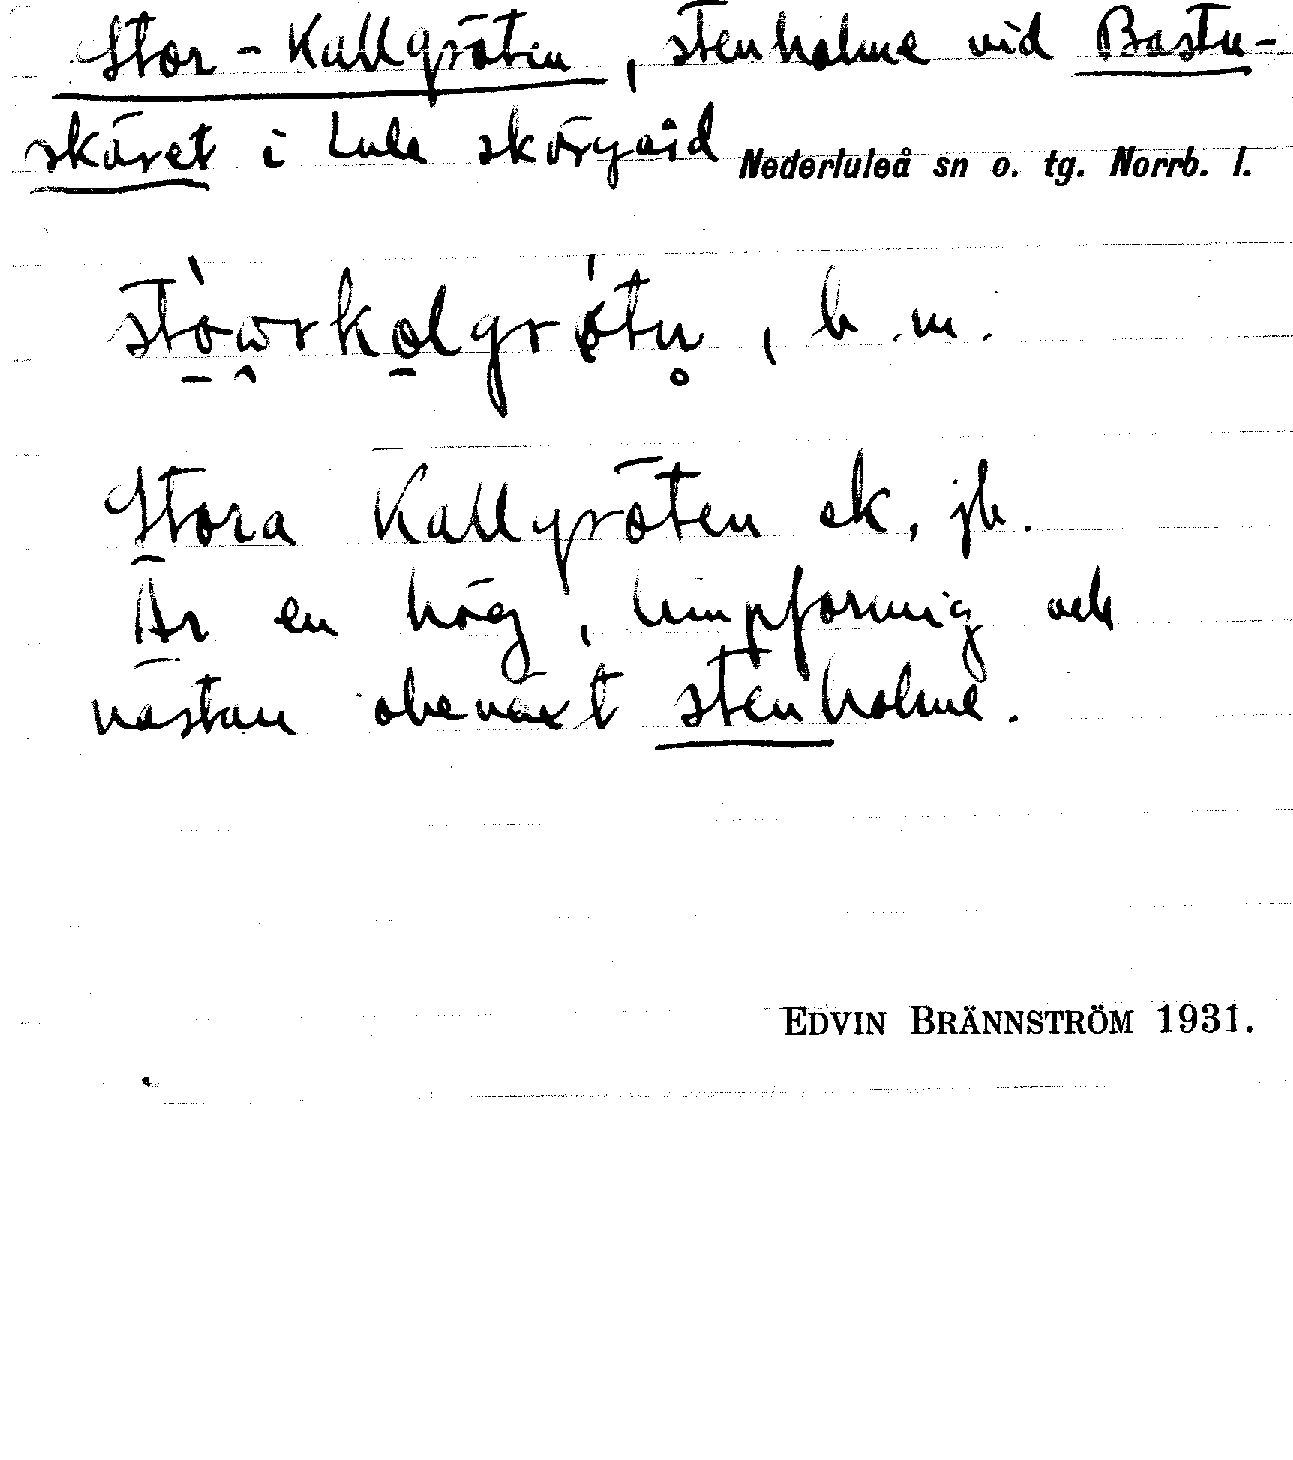 Stor-Kallgröten, stenholme vid Bastu-
skäret i Lule skärgård Nederluleå sn o. tg. Norrb. l.
b. m.
Stora Kallgröten ek. jb.
Är en hög, limpformig och
nästan obeväxt stenholme.
EDVIN BRÄNNSTRÖM 1931.